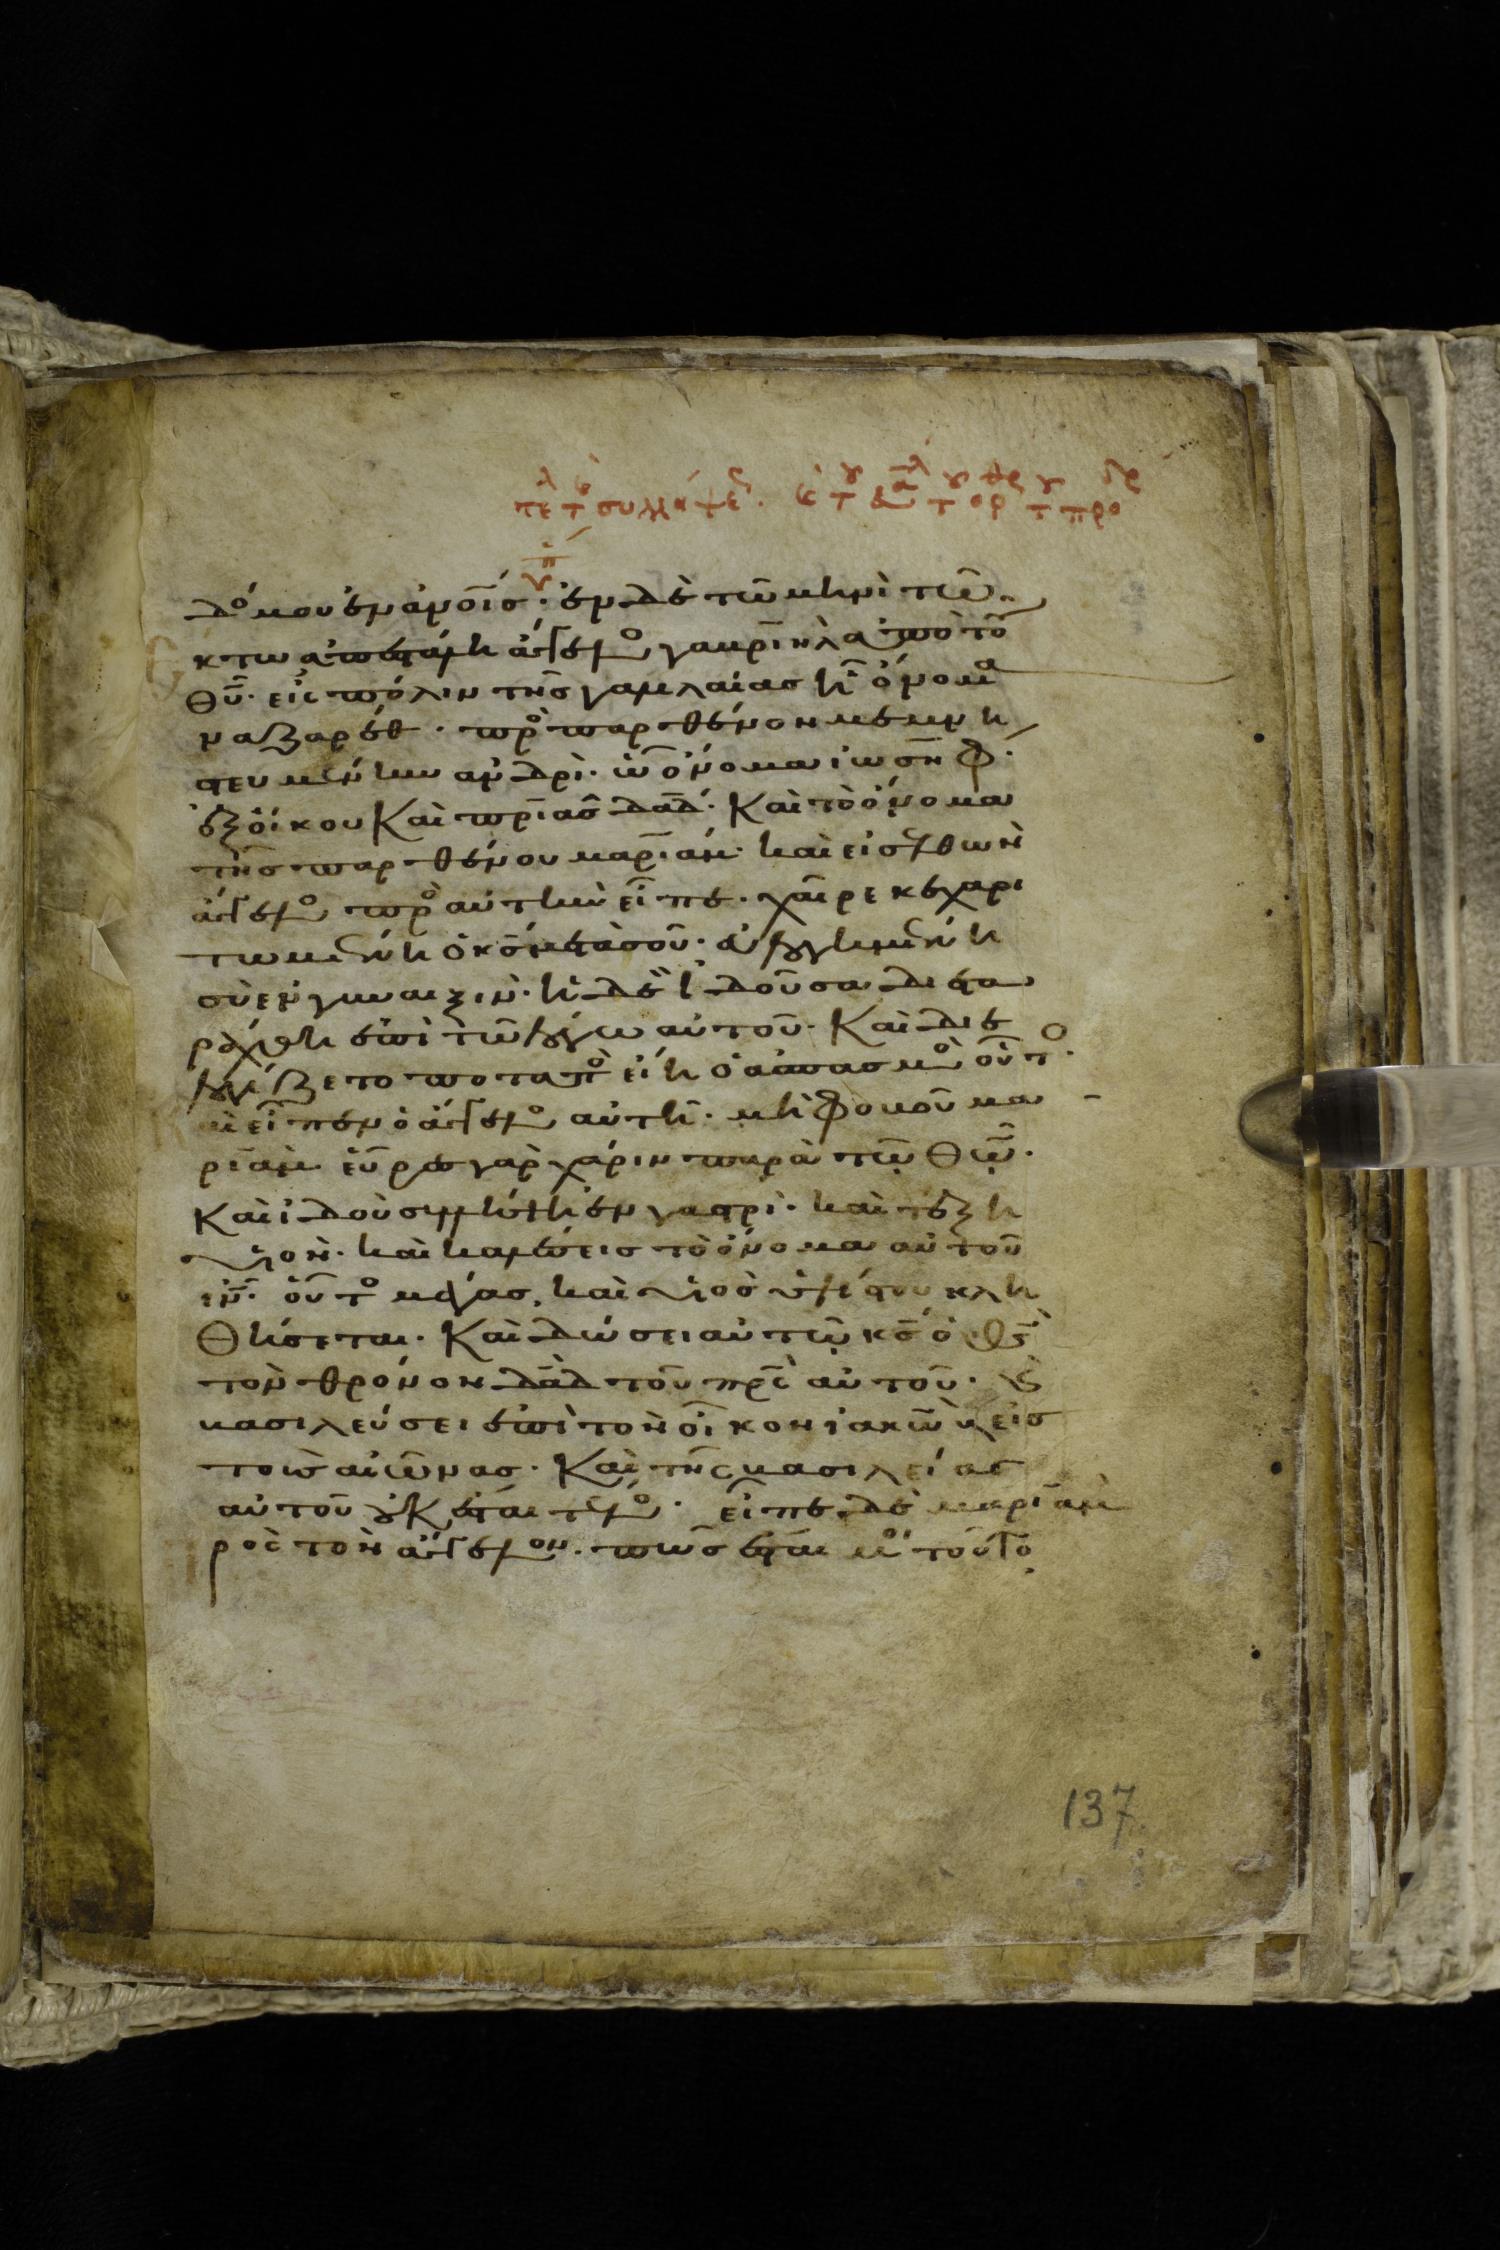 τε τ συλλήψε κ τ τ ορ τ προ
δόμου ἐν ἀνοῖς· ἐν δὲ τῶ μηνὶ τῶ
κτω ἀπεστάλη ἄγγελο γαβριὴλ ἀπὸ τοῦ
θυ· εἰς πόλιν τῆς γαλιλαίας ἧ ὄνομα
ναζαρέθ· πρὸ παρθένον μεμνη
στευμένην ἀνδρὶ· ὧ ὄνομα ἰωσὴφ·
ἐξ οἴκου καὶ πριας δαδ· καὶ τὸ ὄνομα
τῆς παρθένου μαριάμ· καὶ εἰσελθὼν
ἄγγελο πρὸ αὐτὴν εἶπε· χαῖρε κεχαρι
τωμένη ὁ κς μετὰ σοῦ· εὐλογημένη
σὺ ἐν γυναιξὶν· ἡ δὲ ἰδοῦσα διετα
ράχθη ἐπὶ τῶ λόγω αὐτοῦ· καὶ διε
λογίζετο ποταπὸ εἴη ὁ ἀσπασμὸ οὗτο·
καὶ εἶπεν ὁ ἄγγελο αὐτῆ· μὴ φοβοῦ μα
ριὰμ εὗρες γὰρ χάριν παρὰ τῷ θῷ·
καὶ ἰδοὺ συλλήψη ἐν γαστρὶ· καὶ τέξη
υἱὸν· καὶ καλέσεις τὸ ὄνομα αὐτοῦ
ιν· οὗτο μέγας, καὶ υἱὸς ὑψίστου κλη
θήσεται· καὶ δώσει αὐτῷ κς ὁ θς
τὸν θρόνον δαδ τοῦ πρς αὐτοῦ· καὶ
βασιλεύσει ἐπὶ τὸν οἶκον ἰακὼβ εἰς
τοὺς αἰῶνας· καὶ τῆς βασιλείας
αὐτοῦ οὐκ ἔσται τέλο· εἶπε δὲ μαριὰμ
ρὸς τὸν ἄγγελον· πῶς ἔσται μοι τοῦτο
137